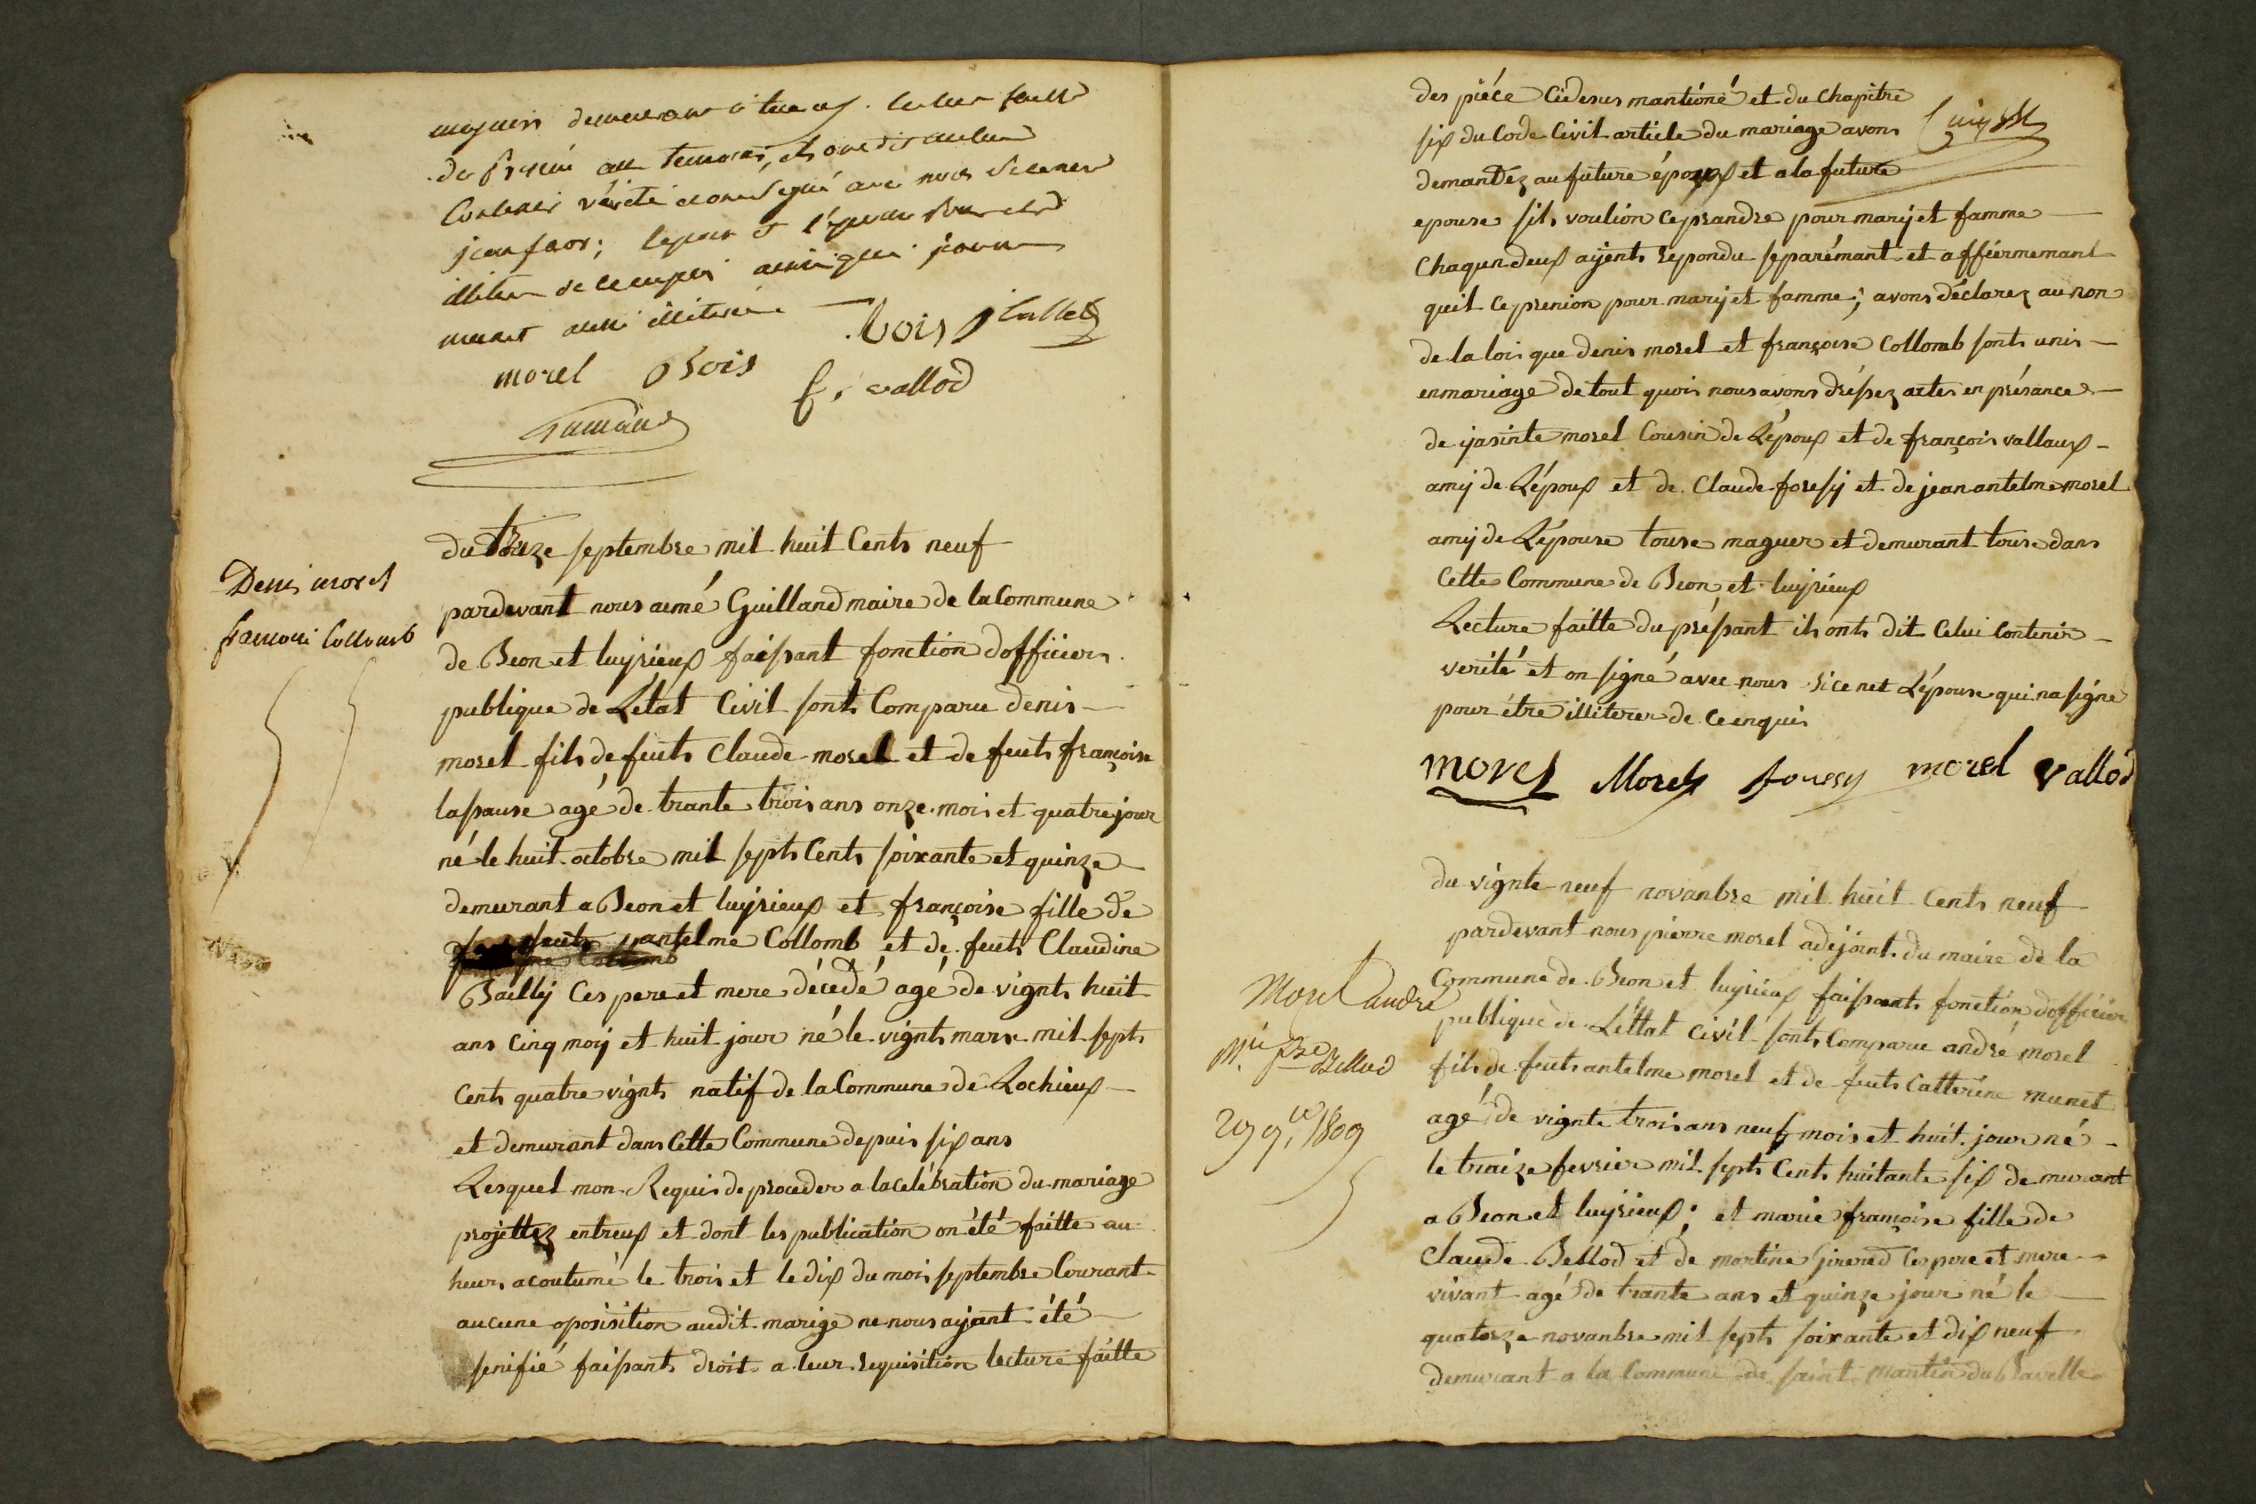 majeurs demeurant à
du present aux temoins, ils ont dit celui
Contenir vérité et ont signé avec nous
jean ; l'epoux et l'epouse
de ce enquis ainsi que
aussi
morel Bois Bois
f. vallod
Denis morel
francoise Collomb
du treze septembre mil huit Cents neuf
pardevant nous aimé Guilland maire de la Commune
de Beon et luyrieux faissant fonction dofficiers
publique de Létat Civil sonts Comparu denis
morel fils de feuts Claude morel et de feuts françoise
lapause agé de trante trois ans onze mois et quatre jour
né le huit octobre mil septs Cents soixante et quinze
demeurant a Beon et luyrieux et françoise fille de
feuts antelme Collomb et de feuts Claudine
Bailly Ces pere et mere décedé agé de vignts huit
ans cinq moij et huit jour né le vignts mars mil septs
Cents quatre vignts natif de la Commune de Lochieux
et demurant dans Cette Commune depuis six ans
Lesquel mon Requis de proceder a la celébration du mariage
projettez entreux et dont les publication on été faitte au
heurs acoutumé le trois et le dix du mois septembre Courant
aucune oposisition audit marige ne nous ayant été
senifié faissants droit a leur requisition lecture faitte
des piéce Cidesus mantioné et du Chapitre
six du Code Civil article du mariage avons
demandéz au future époux et a la future
epouse sils voulion ceprandre pour marij et famme
Chaqun deux aijents repondu separémant et affeirmemant
quil ceprenion pour marij et famme; avons déclarez au non
de la loi que denis morel et françoise Collomb sonts unis
en mariage de tout quoi nous avons dréssez actes en présance
de ijasinte morel Cousin de Lépoux et de françois vallaux
amij de Lépoux et de Claude foressij et de jean antelme morel
amij de Lépouse touse maguer et demurant touse dans
Cette Commune de Beon et luyrieux
Lecture faitte du préssant ils onts dit Celui Contenir
verité et on signé avec nous si ce net Lépouse qui na signe
pour étre illiterer de ce enquis
morel Morel foressy morel vallod
Morel andré
Mie fse Bellod
29 9bre 1809
du vignte neuf novanbre mil huit Cents neuf
pardevant nous pierre morel adejoint du maire de la
Commune de Beon et luyrieux faissants fonction dofficier
publique de Léttat Civil sonts Comparu andré morel
fils de feuts antelme morel et de feuts Catterine munet
agé de vignte trois ans neuf mois et huit jour né
le traize fevrier mil septs Cents huitante six demurant
a Beon et luyrieux; et marie françoise fille de
Claude Bellod et de martine Girerd Ces pere et mere
vivant agé de trante ans et quinze jour né le
quatorze novanbre mil septs soixante et dix neuf
demurant a la Commune de saint martin du Bavelle